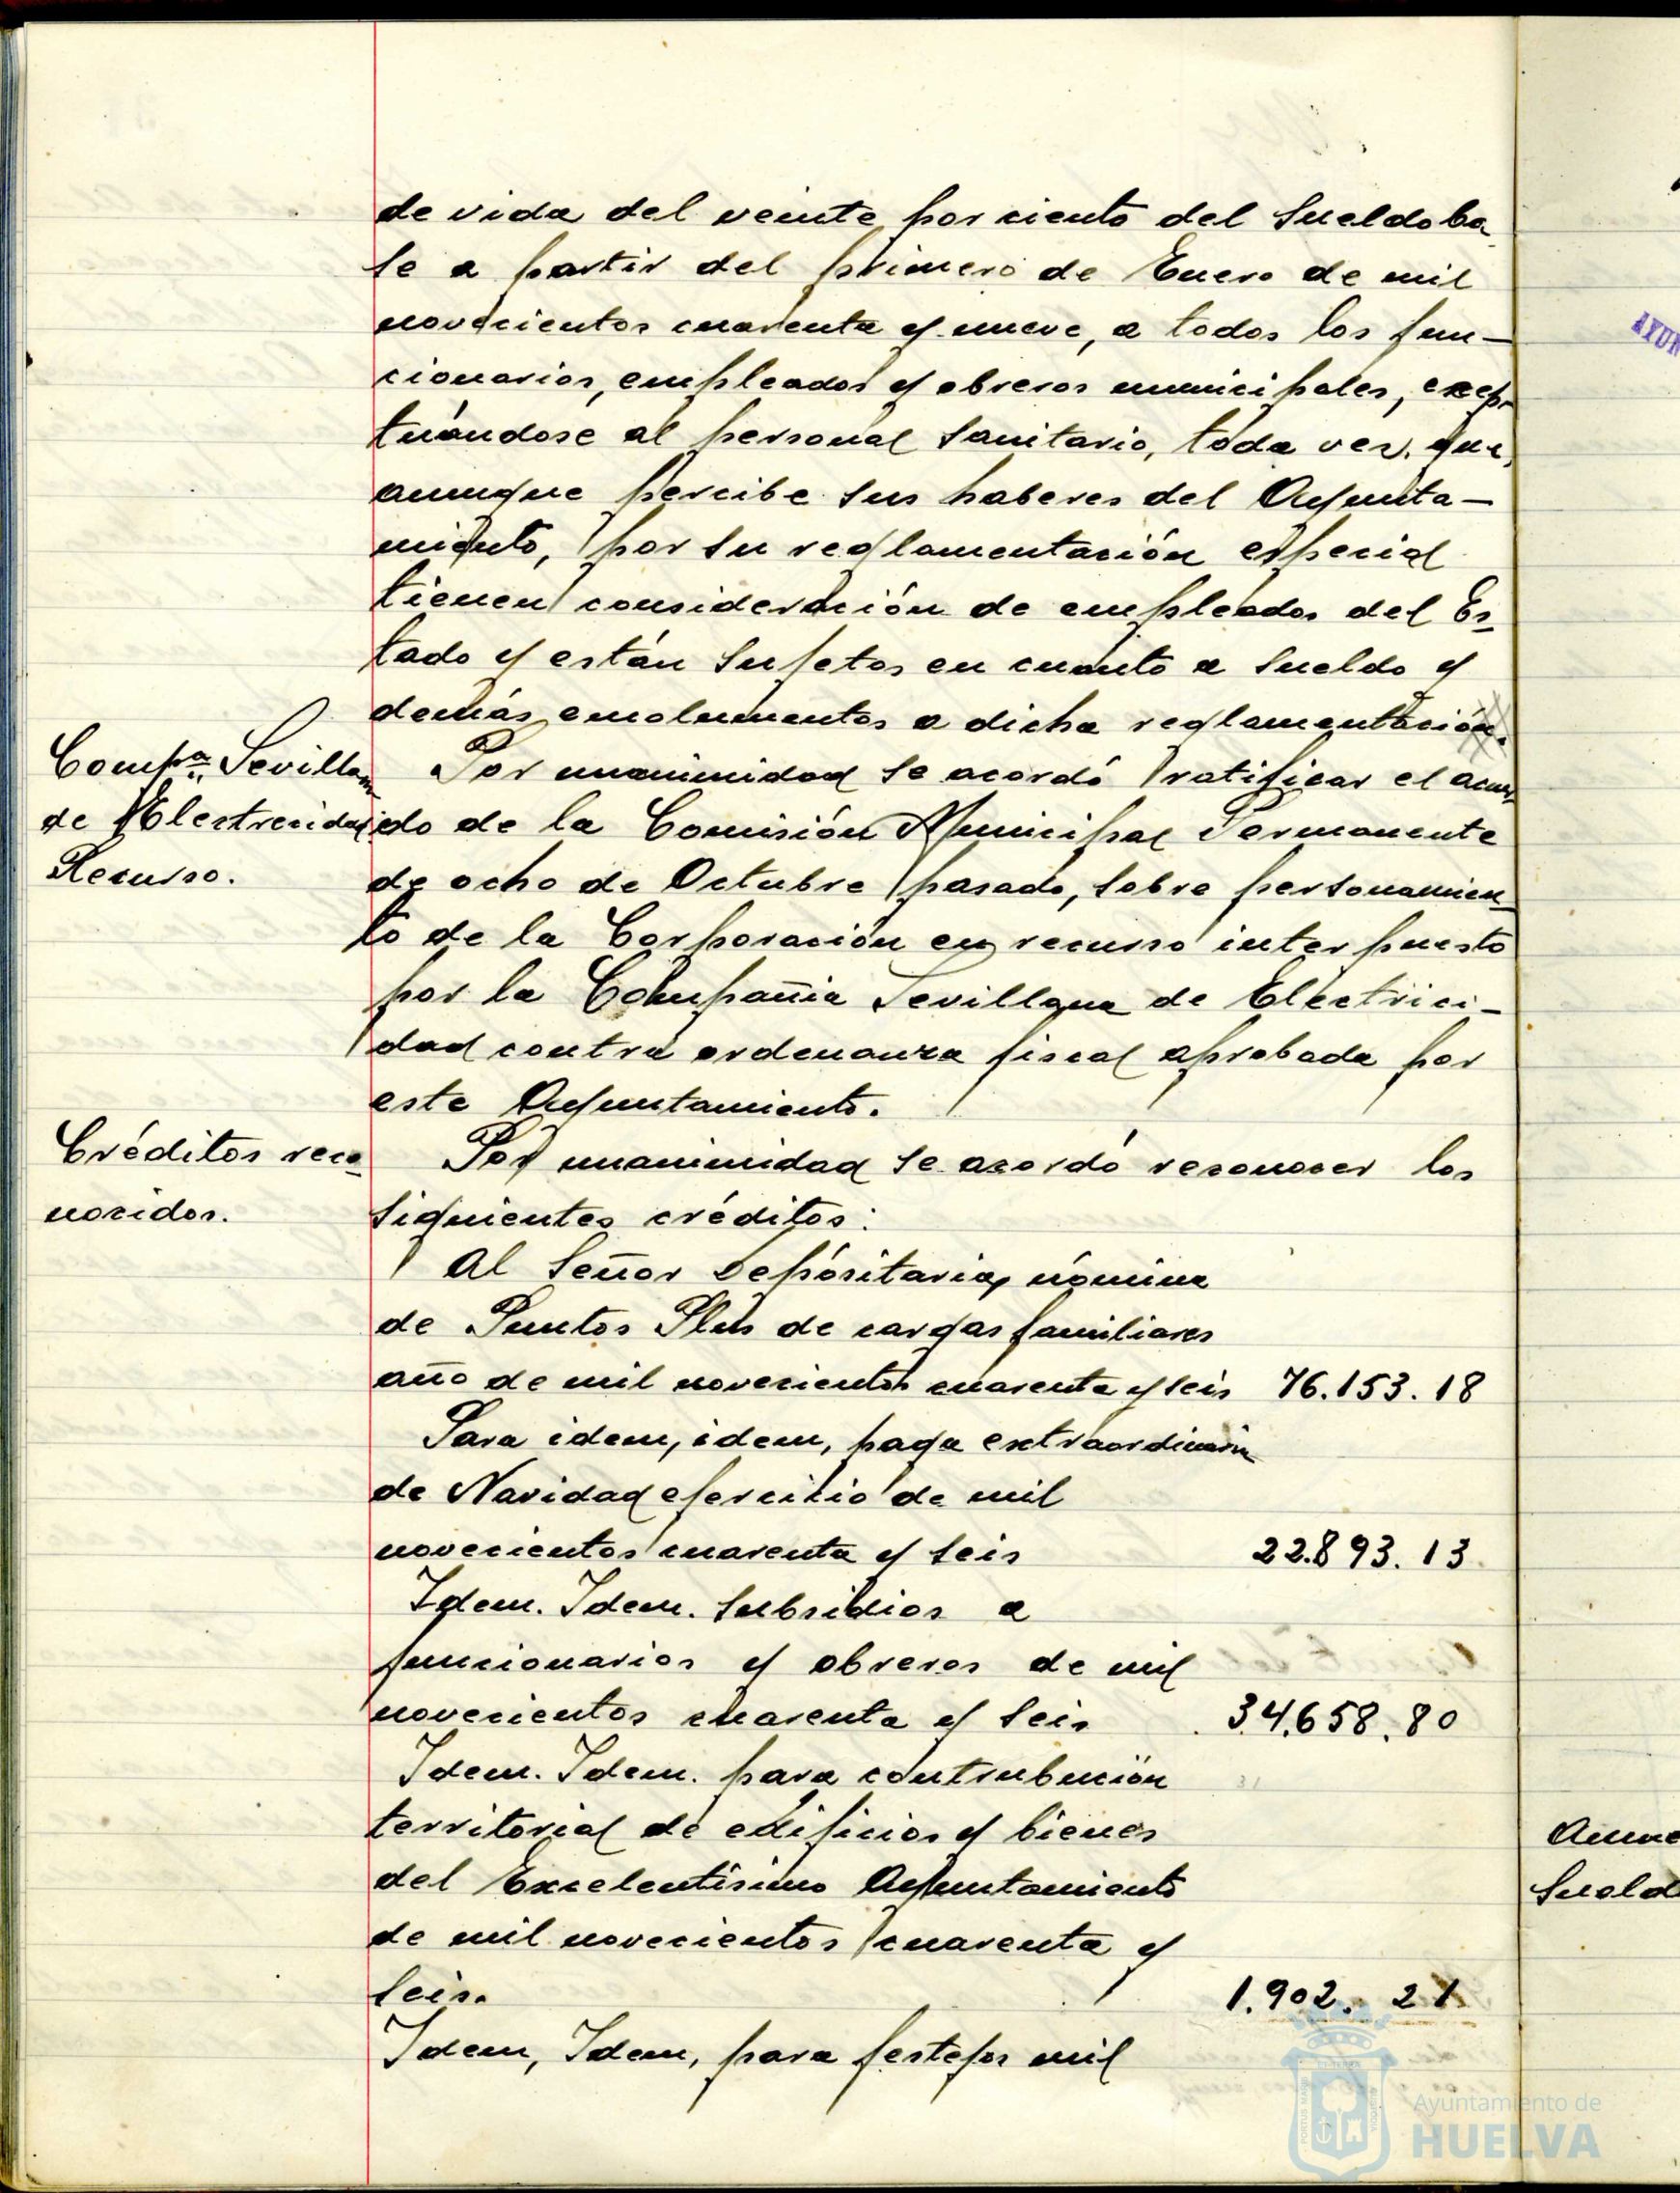 de vida del veinte por ciento del sueldo ba-
se a partir del primero de Enero de mil
novecientos cuarenta y nueve, a todos los fun-
cionarios, empleados y obreros municipales, excep-
tuándose al personal sanitario, toda vez que,
aunque percibe sus haberes del Ayunta-
miento, por su reglamentación especial
tienen consideración de empleados del Es-
tado y están sujetos en cuanto a sueldo y
demás emolumentos a dicha reglamentación.
Compª. Sevillana
de Electrecidad
Recurso.
Por unanimidad se acordó ratificar el acuer-
do de la Comisión Municipal Permanente
de ocho de Octubre pasado, sobre personamien-
to de la Corporación en recurso interpuesto
por la Compañia Sevillana de Electrici-
dad contra ordenanza fiscal aprobada por
este Ayuntamiento.
Créditos reco-
nocidos.
Por unanimidad se acordó reconocer los
siguientes créditos:
Al Señor Depósitario, nómina
de Puntos Plus de cargas familiares
año de mil novecientos cuarenta y seis 76.153.18
Para idem, idem, paga extraordinaria
de Navidad ejercicio de mil
novecientos cuarenta y seis 22.893.13
Idem. Idem. Subsidios a
funcionarios y obreros de mil
novecientos cuarenta y seis 34.658.80
Idem. Idem. para contrubución
territorial de edificios y bienes
del Excelentísimo Ayuntamiento
de mil novecientos cuarenta y
seis. 1.902.21
Idem, Idem, para festejos mil
Ayuntamiento de
HUELVA